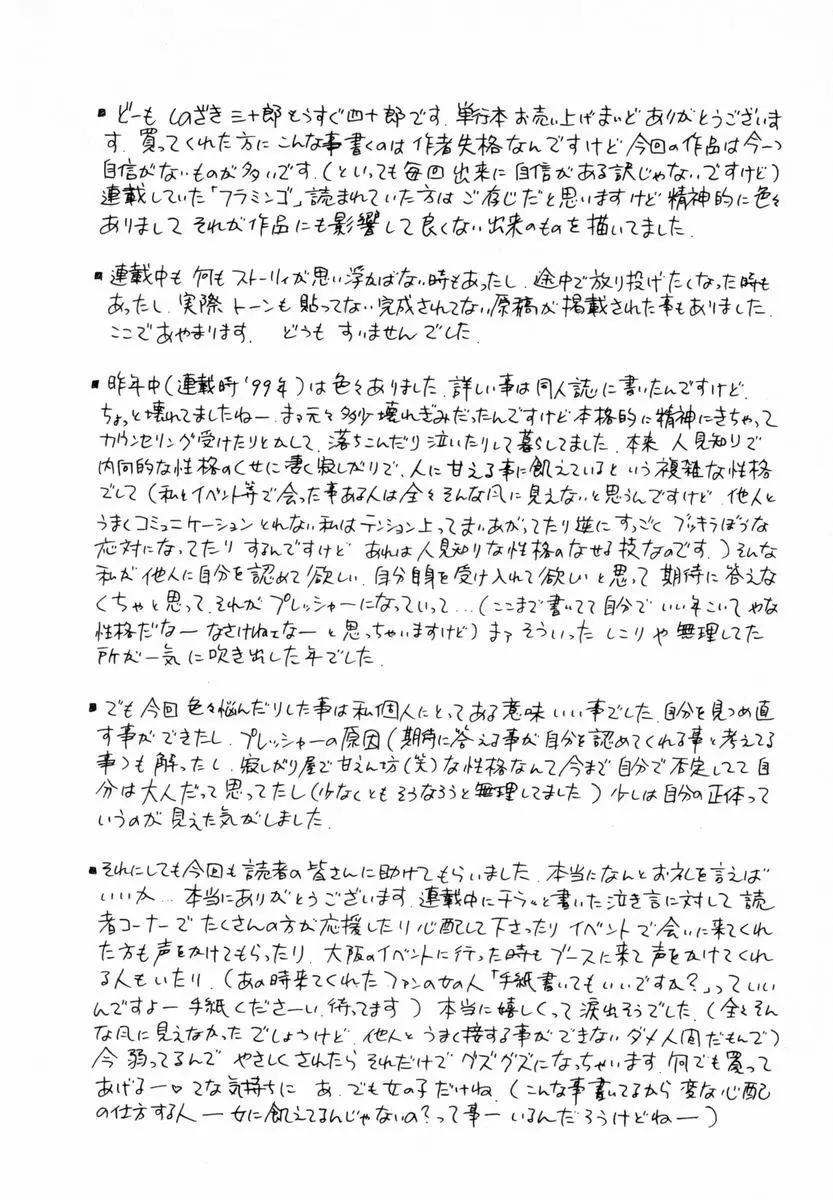 ■どーも しのざき三十郎もうすぐ四十郎です.単行本お売い上げまいどありがとうございま
す.買ってくれた方にこんな事書くのは作者失格なんですけど今回の作品は今一つ
自信がないものが多いです.(といっても毎回出来に自信がある訳じゃないですけど)
連載していた「フラミンゴ」読まれていた方はご存じだと思いますけど精神的に色々
ありまして それが作品にも影響して良くない出来のものを描いてました.
■連載中も何もストーリィが思い浮かばない時もあったし.途中で放り投げたくなった時も
あったし.実際トーンも貼ってない完成されてない原稿が掲載された事もありました.
ここであやまります. どうもすいませんでした.
■昨年中(連載時'99年)は色々ありました.詳しい事は同人誌に書いたんですけど.
ちょっと壊れてましたねー.まァ元々多少壊れぎみだったんですけど本格的に精神にきちゃって
カウンセリング受けたりとかして.落ちこんだり泣いたりして暮らしてました.本来 人見知りで
内向的な性格のくせに凄く寂しがりで.人に甘える事に飢えているという複雑な性格
でして(私とイベント等で会った事ある人は全々そんな風に見えないと思うんですけど.他人と
うまくコミュニケーションとれない私はテンション上ってまいあがってたり逆にすっごく ブッキラぼうな
応対になってたり するんですけど あれは人見知りな性格のなせる技なのです.)そんな
私が他人に自分を認めて欲しい.自分自身を受け入れて欲しいと思って 期待に答えな
くちゃと思って.それが プレッシャーになっていって…(ここまで書いてて自分で いい年こいて やな
性格だなー なさけねェなー と思っちゃいますけど)まァ そういった しこりや無理してた
所が一気に吹き出した年でした.
■でも今回色々悩んだりした事は私個人にとってある意味いい事でした.自分を見つめ直
す事ができたし.プレッシャーの原因(期待に答える事が自分を認めてくれる事と考えてる
事)も解ったし.寂しがり屋で甘えん坊(笑)な性格なんて今まで自分で不定してて自
分は大人だって思ってたし(少なくともそうなろうと無理してました)少しは自分の正体って
いうのが見えた気がしました.
■それにしても今回も読者の皆さんに助けてもらいました.本当になんとお礼を言えば
いいか… 本当にありがとうございます.連載中にチラッと書いた泣き言に対して読
者コーナーでたくさんの方が応援したり心配して下さったり イベントで会いに来てくれ
た方も声をかけてもらったり.大阪のイベントに行った時もブースに来て声をかけてくれ
る人もいたり.(あの時来てくれたファンの女の人「手紙書いてもいいですか?」っていい
んですよー手紙くださーい.待ってます)本当に嬉しくって涙出そうでした.(全々そん
な風に見えなかったでしょうけど.他人とうまく接する事ができないダメ人間だもんで)
今 弱ってるんで やさしくされたら それだけで グズグズになっちゃいます.何でも買って
あげるー♡てな気持ちに あ.でも女の子だけね.(こんな事書いてるから 変な心配
の仕方する人 ー女に飢えてるんじゃないの?って事ー いるんだろうけどねー)